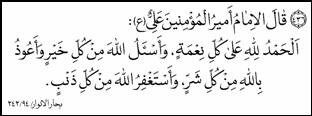 ٤٣ قالَ الاِمامُ أَميرُ المُؤْمِنينَ عَلىٌّ (ع):
اَلْحَمْدُ لِلّهِ عَلى كُلِّ نِعْمَةٍ. وَاَسْئَلُ اللهَ مِنْ كُلِّ خَيْرٍ وَاَعُوذُ
بِاللهِ مِنْ كُلِّ شَرٍّ. وَاَسْتَغْفِرُ اللهَ مِنْ كُلِّ ذَنْبٍ.
بحارالانوار ٢٤٢/٩٤